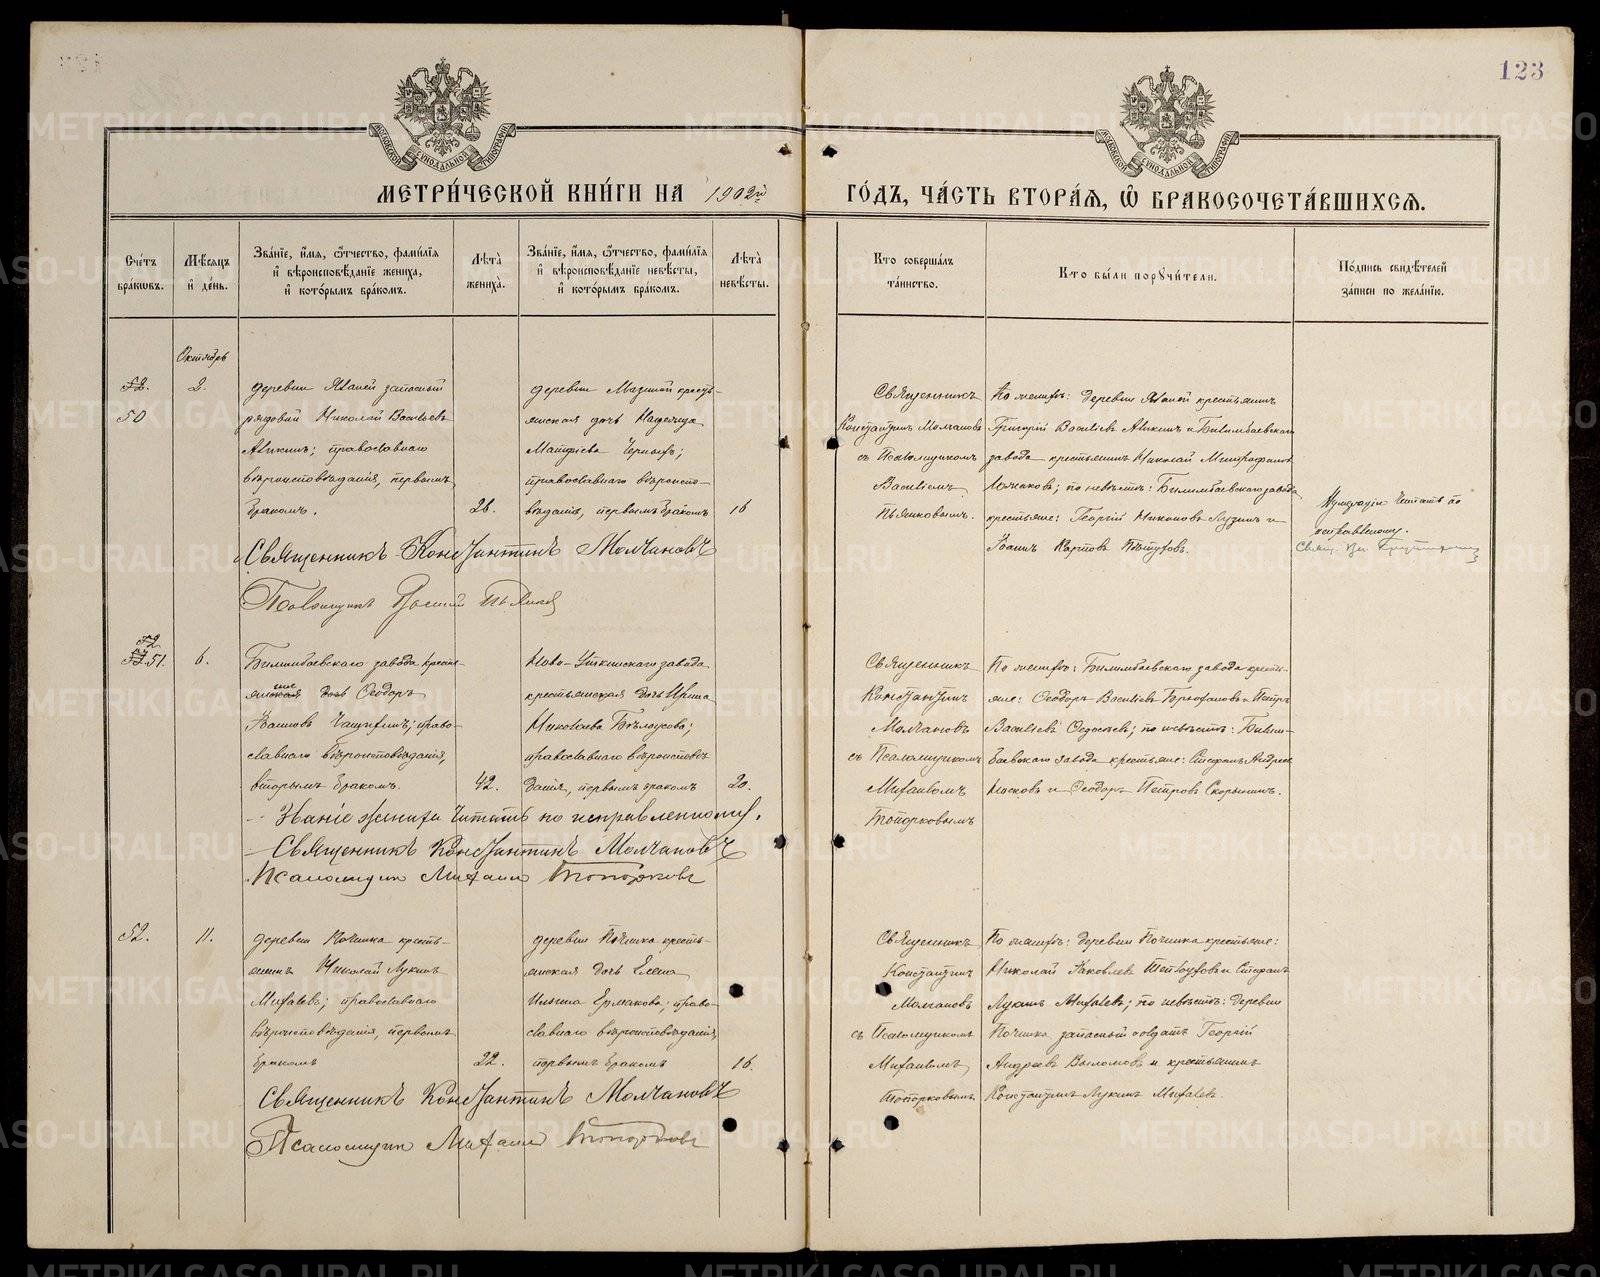 123
МОСКОВСКОЙ СѴНОДАЛЬНОЙ ТИПОГРАФІИ
МОСКОВСКОЙ СѴНОДАЛЬНОЙ ТИПОГРАФІИ
МЕТРИ́ЧЕСКОЙ КНИ́ГИ НА 1902й ГО́ДЪ, ЧА́СТЬ ВТОРА́Ѧ, Ѽ БРАКОСОЧЕТА́ВШИХСѦ.
Сче́тъ бра́кѡвъ.
Мѣ́сѧцъ и҆ де́нь.
Зва́нїе, и҆́мѧ, ѻ҆́тчество, фами́лїѧ
и҆ вѣроисповѣ́данїе жениха̀,
и҆ кото́рымъ бра́комъ.
Лѣ́та̀ жениха̀.
Зва́нїе, и҆́мѧ, ѻ҆́тчество, фами́лїѧ
и҆ вѣроисповѣ́данїе невѣ́сты,
и҆ кото́рымъ бра́комъ.
Лѣ́та̀ невѣ́сты.
Кто соверша́лъ
та́инство.
Кто бы́ли порꙋчи́тели.
По́дпись свидѣ́телей
за́писи по жела́нїю.
Октябрь
52.
50
2.
деревни запасный
рядовой Николай Васильевъ
православнаго
вѣроисповѣданія, первымъ
бракомъ.
деревни кресть-
янская дочь Надежда
православнаго вѣроиспо-
вѣданія, первымъ бракомъ
16
Священникъ
Константинъ Молчановъ
съ Псаломщикомъ
Василіемъ
Пьянковымъ.
По женихѣ: деревни крестьянинъ
Григорій Васильевъ и Билимбаевскаго
завода крестьянинъ Николай Митрофановъ
по невѣстѣ: Билимбаевскаго завода
крестьяне: Георгій Никоновъ и
Іоаннъ Карповъ
Нумерацію читать по
исправленному.
Священникъ Константинъ Молчановъ
Псаломщикъ Василій Пьянковъ
51.
6.
Билимбаевскаго завода кресть-
Ѳеодоръ
Іоанновъ право-
славнаго вѣроисповѣданія,
вторымъ бракомъ.
42.
Ново-Уткинскаго завода
крестьянская дочь Ирина
Николаева Бѣлоусова;
православнаго вѣроисповѣ-
данія, первымъ бракомъ
20.
Священникъ
Константинъ
Молчановъ
съ Псаломщикомъ
Михаиломъ
Топорковымъ
По женихѣ: Билимбаевскаго завода кресть-
яне: Ѳеодоръ Васильевъ и Петръ
Васильевъ по невѣстѣ: Билим-
баевскаго завода крестьяне: Стефанъ Андреевъ
Носковъ и Ѳеодоръ Петровъ Скорынинъ.
Званіе жениха читать по исправленному.
Священникъ Константинъ Молчановъ
Псаломщикъ Михаилъ Топорковъ
52.
11.
деревни Починка кресть-
янинъ Николай Лукинъ
Михалевъ; православнаго
вѣроисповѣданія, первымъ
бракомъ
22.
деревни Починка кресть-
янская дочь Елена
Ильина Ермакова; право-
славнаго вѣроисповѣданія,
первымъ бракомъ
16.
Священникъ
Константинъ
Молчановъ
съ Псаломщикомъ
Михаиломъ
Топорковымъ
По женихѣ: деревни Починка крестьяне:
Николай Яковлевъ и Стефанъ
Лукинъ Михалевъ; по невѣстѣ: деревни
Починка запасный солдатъ Георгій
Андреевъ и крестьянинъ
Константинъ Лукинъ Михалевъ.
Священникъ Константинъ Молчановъ
Псаломщикъ Михаилъ Топорковъ
METRIKI.GASO-URAL.RU